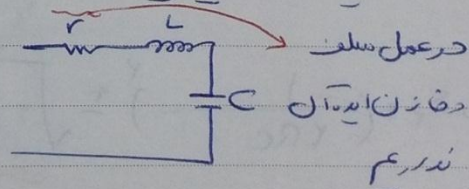 r L در عمل سلف
C و خازن ایده‌آل
نداریم